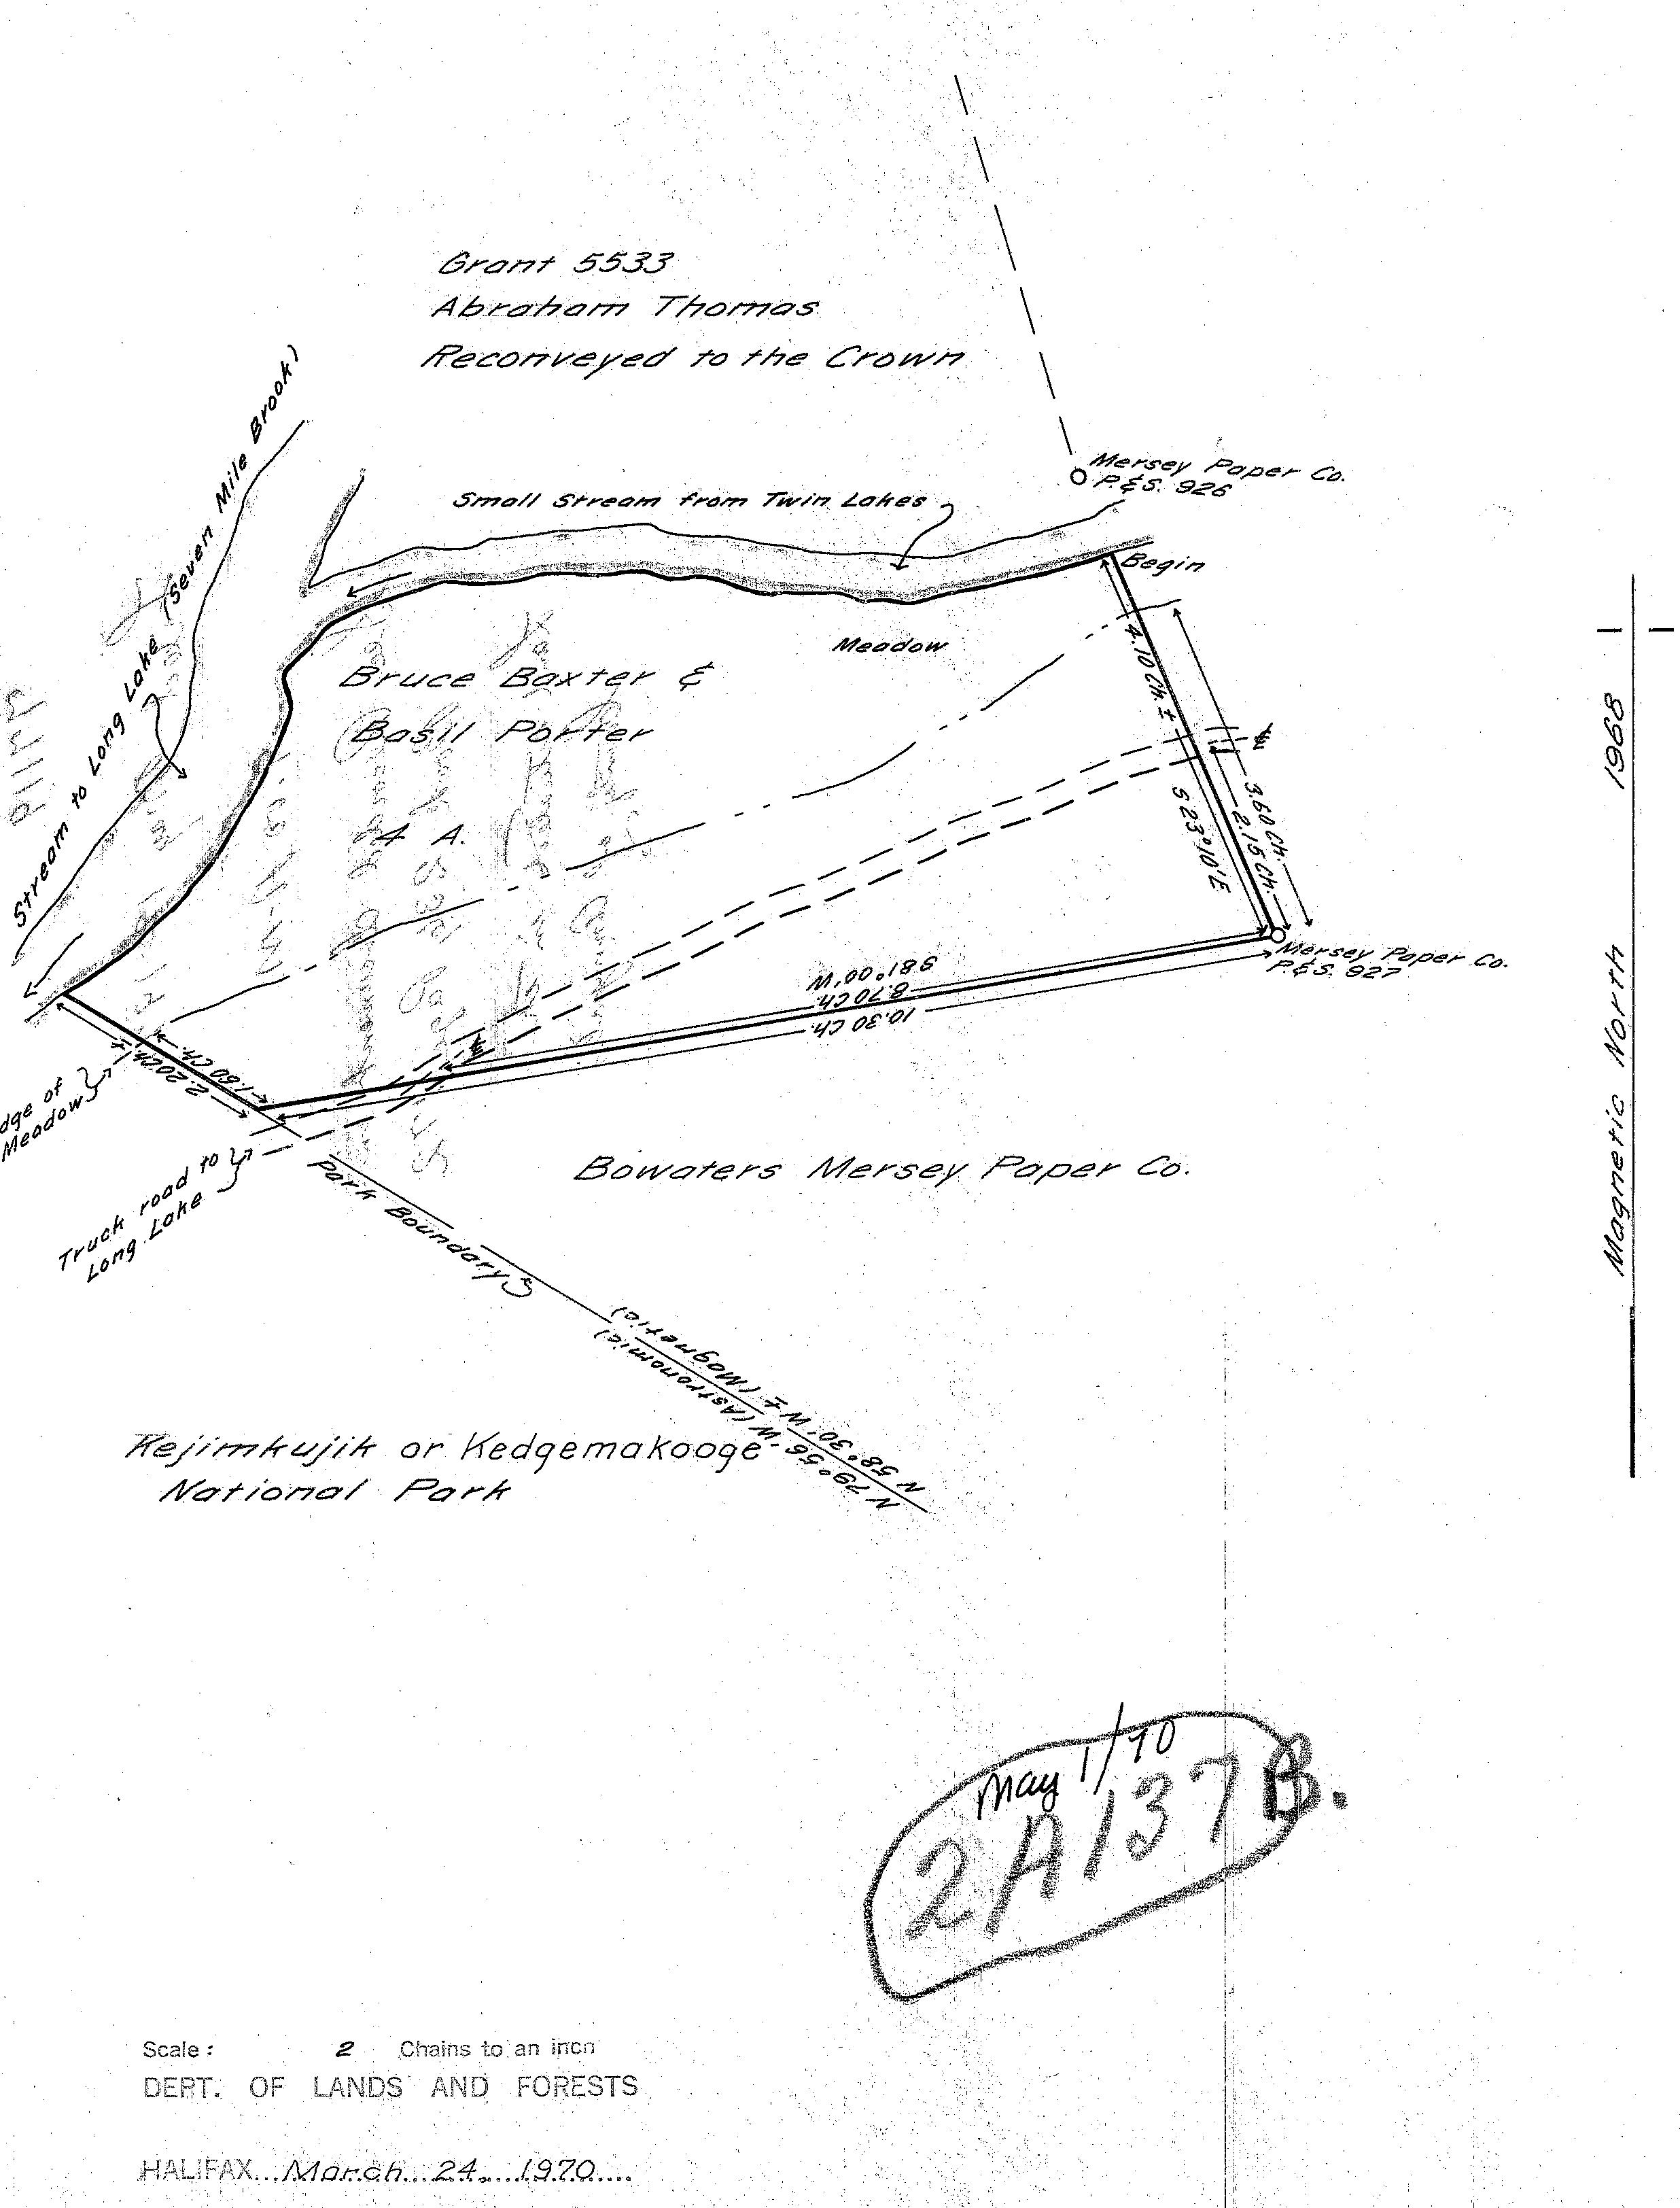 Grant 5533
Abraham Thomas
Reconveyed to the Crown
Mersey Paper Co.
P.&S. 926
Small Stream from Twin Lakes
Begin
Stream to Long Lake (Seven Mile Brook)
Meadow
Bruce Baxter &
Basil Porter
4 A.
4.10 Ch. ±
S 23° 10' E
3.60 Ch.
2.15 Ch.
Mersey Paper Co.
P.&S. 927
S 81° 00' W
8.70 Ch.
10.30 Ch.
1.60 Ch.
2.20 Ch. ±
dge of
Meadow
Truck road to
Long Lake
Park Boundary
Bowaters Mersey Paper Co.
N 58° 30' W ± (Magnetic)
N 79° 56' W (Astronomic)
Kejimkujik or Kedgemakooge
National Park
Magnetic North 1968
May 1/70
2A137B.
Scale: 2 Chains to an inch
DEPT. OF LANDS AND FORESTS
HALIFAX... March 24, 1970....